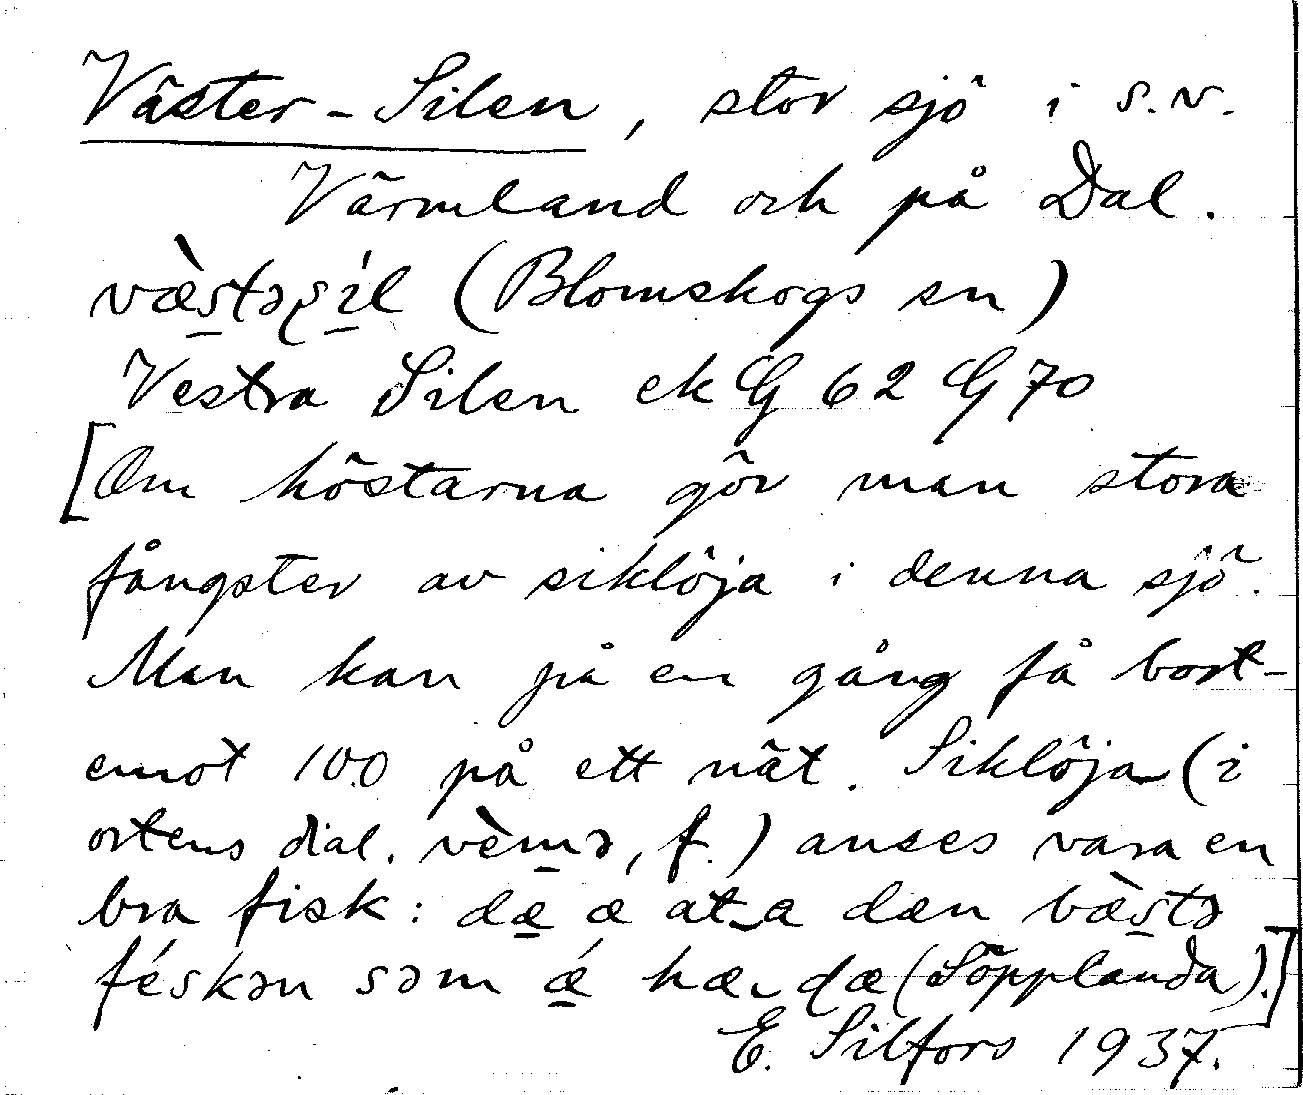 Väster-Silen, stor sjö i s.v.
Värmland och på Dal.
(Blomskogs sn)
Vestra Silen ek G 62 G 70
[Om höstarna gör man stora
fångster av siklöja i denna sjö.
Man kan på en gång få bort-
emot 100 på ett nät. Siklöja (i
ortens dial. vèmə, f.) anses vara en
bra fisk: dæ æ at‿a dæn bæ̀stə
féskən səm ǽ hæ dæ (Söpplanda).]
E. Silfors 1937.